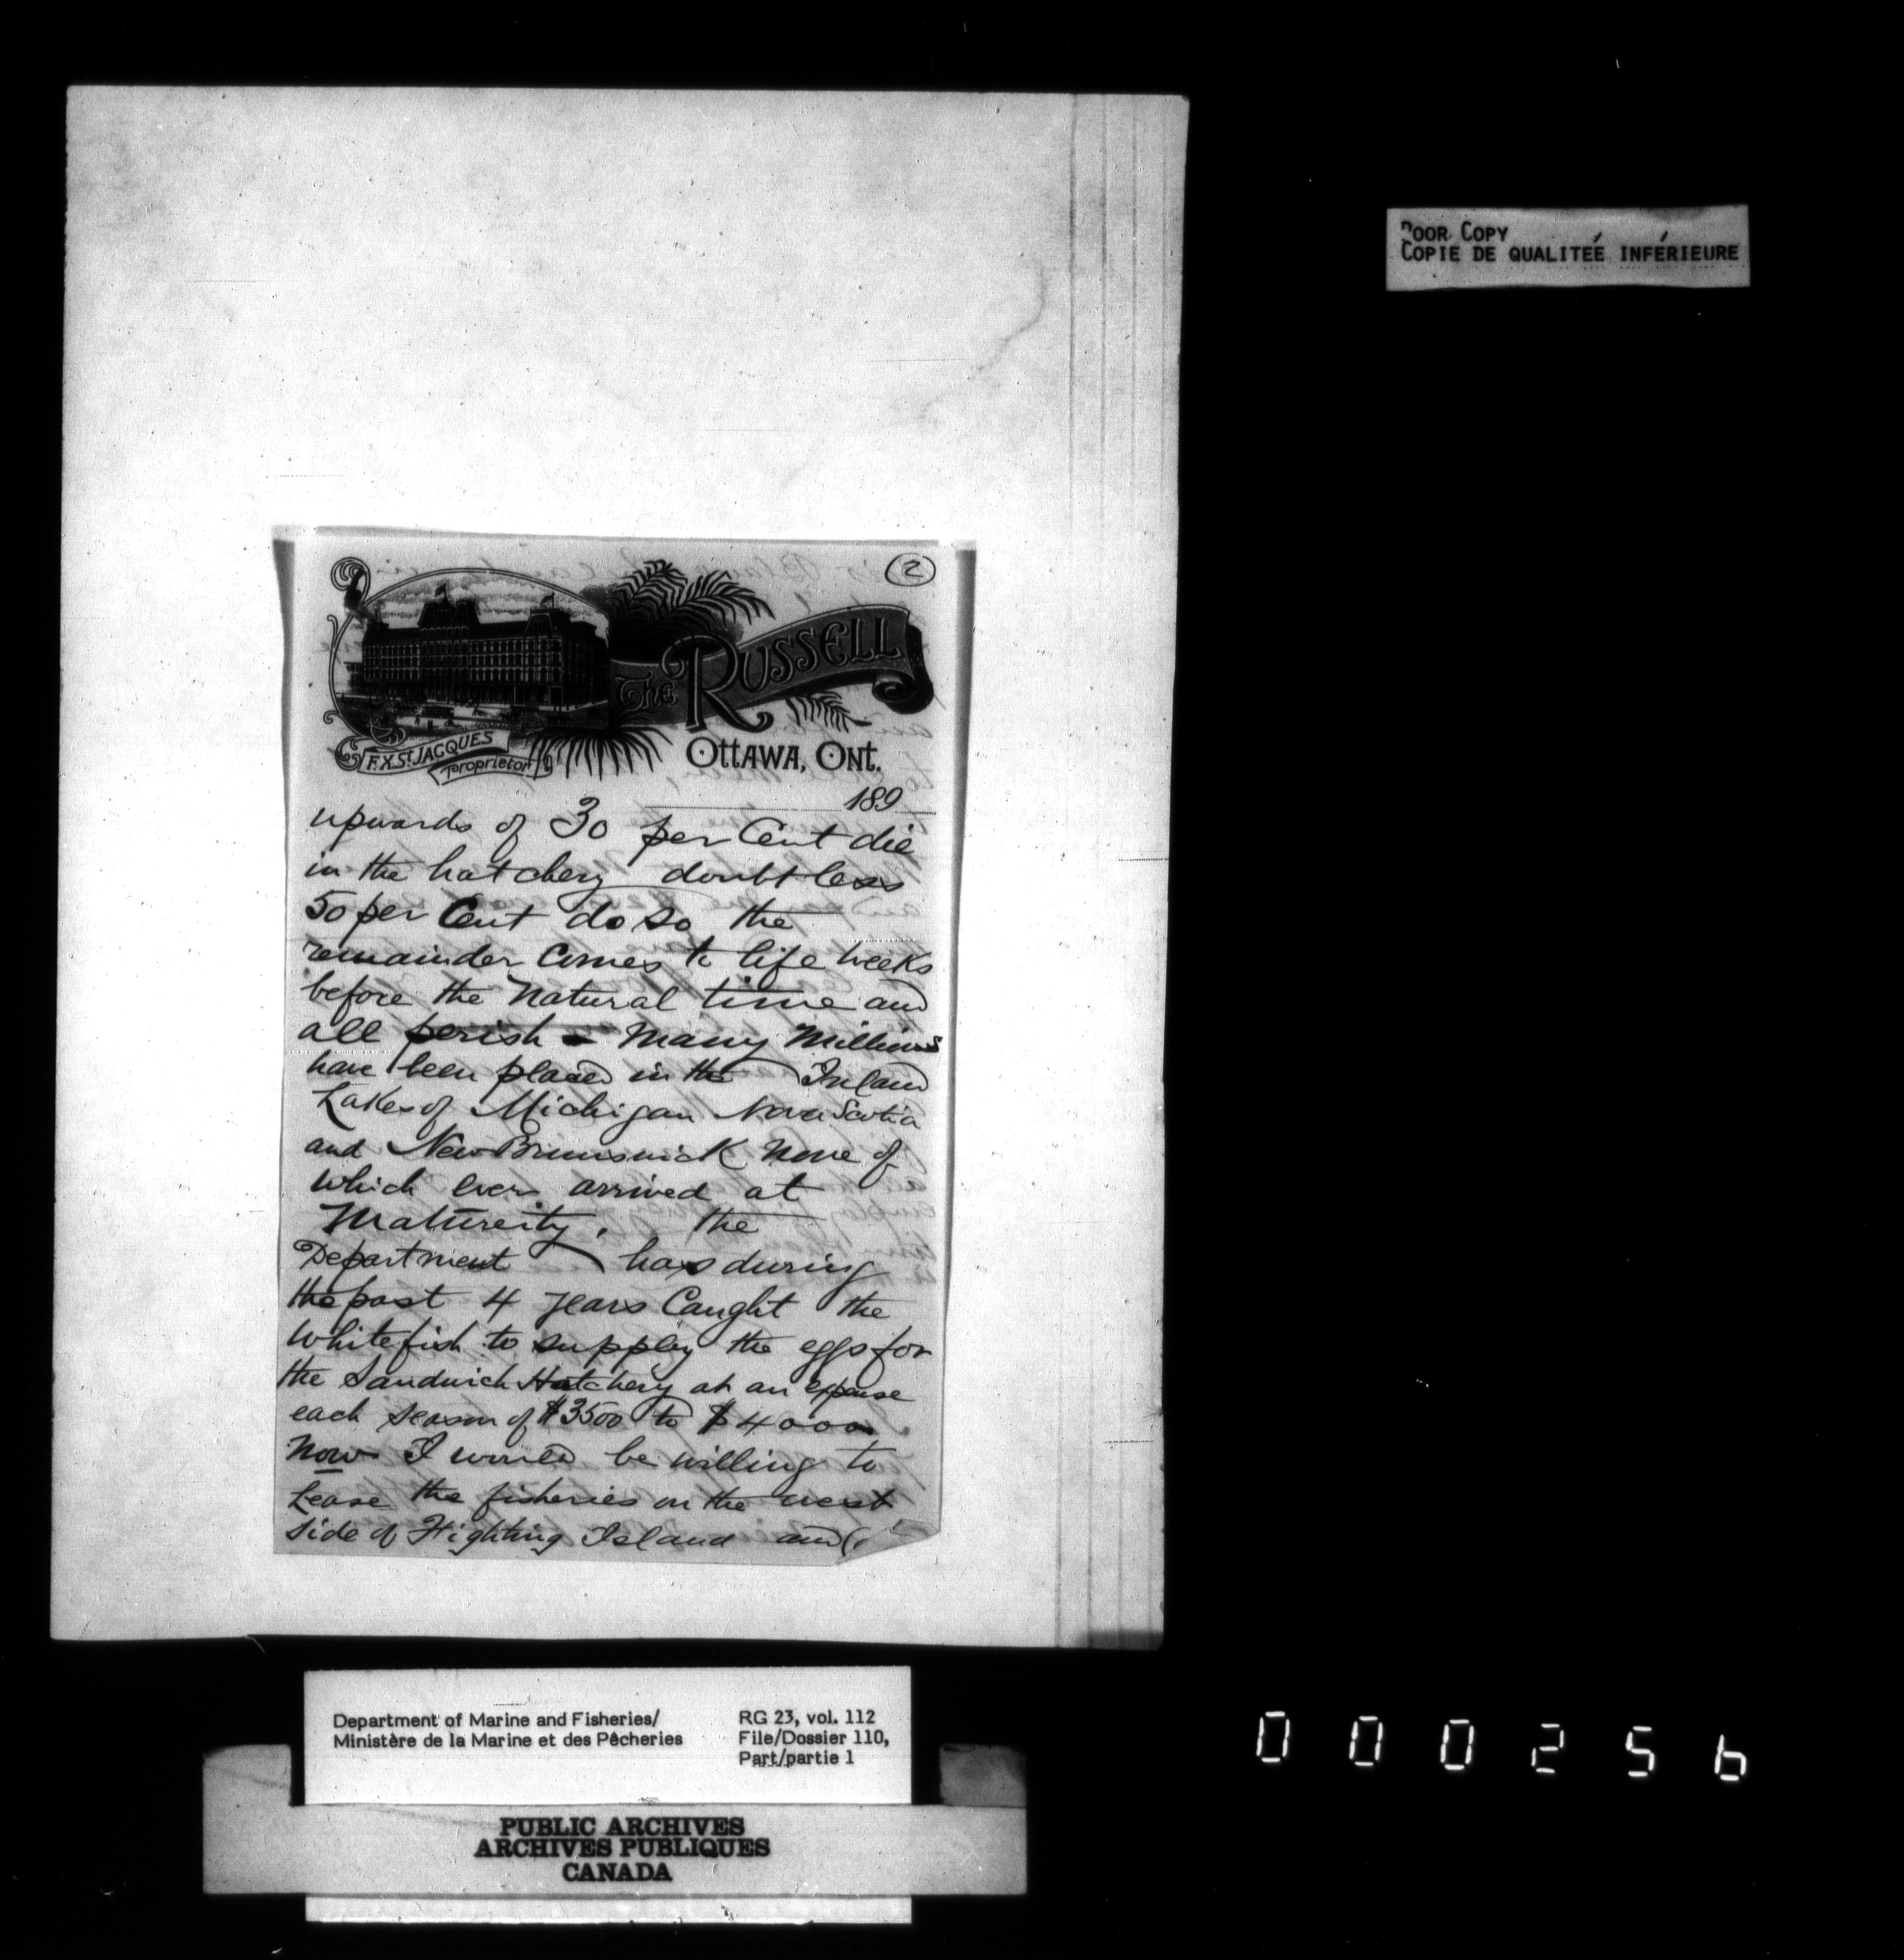 Poor Copy
Copie de qualiteé inférieure
2
The Russell
F.X. St. Jacques
Proprietor
Ottawa, Ont.
189
upwards of 30 per Cent die
in the hatchery doubtless
50 per Cent do so the
remainder comes to life weeks
before the Natural time and
all perish - Many Millions
have been placed in the Inland
Lakes of Michigan Nova Scotia
and New Brunswick none of
which ever arrived at
Matureity, the
Department has during
the past 4 years Caught the
whitefish to supply the eggs for
the Sandwich Hatchery at an expense
each season of $3500 to $4000
Now I would be willing to
Lease the fisheries on the west
side of Fighting Island and
Department of Marine and Fisheries/
Ministère de la Marine et des Pêcheries
RG 23, vol. 112
File/Dossier 110,
Part/partie 1
PUBLIC ARCHIVES
ARCHIVES PUBLIQUES
CANADA
000256